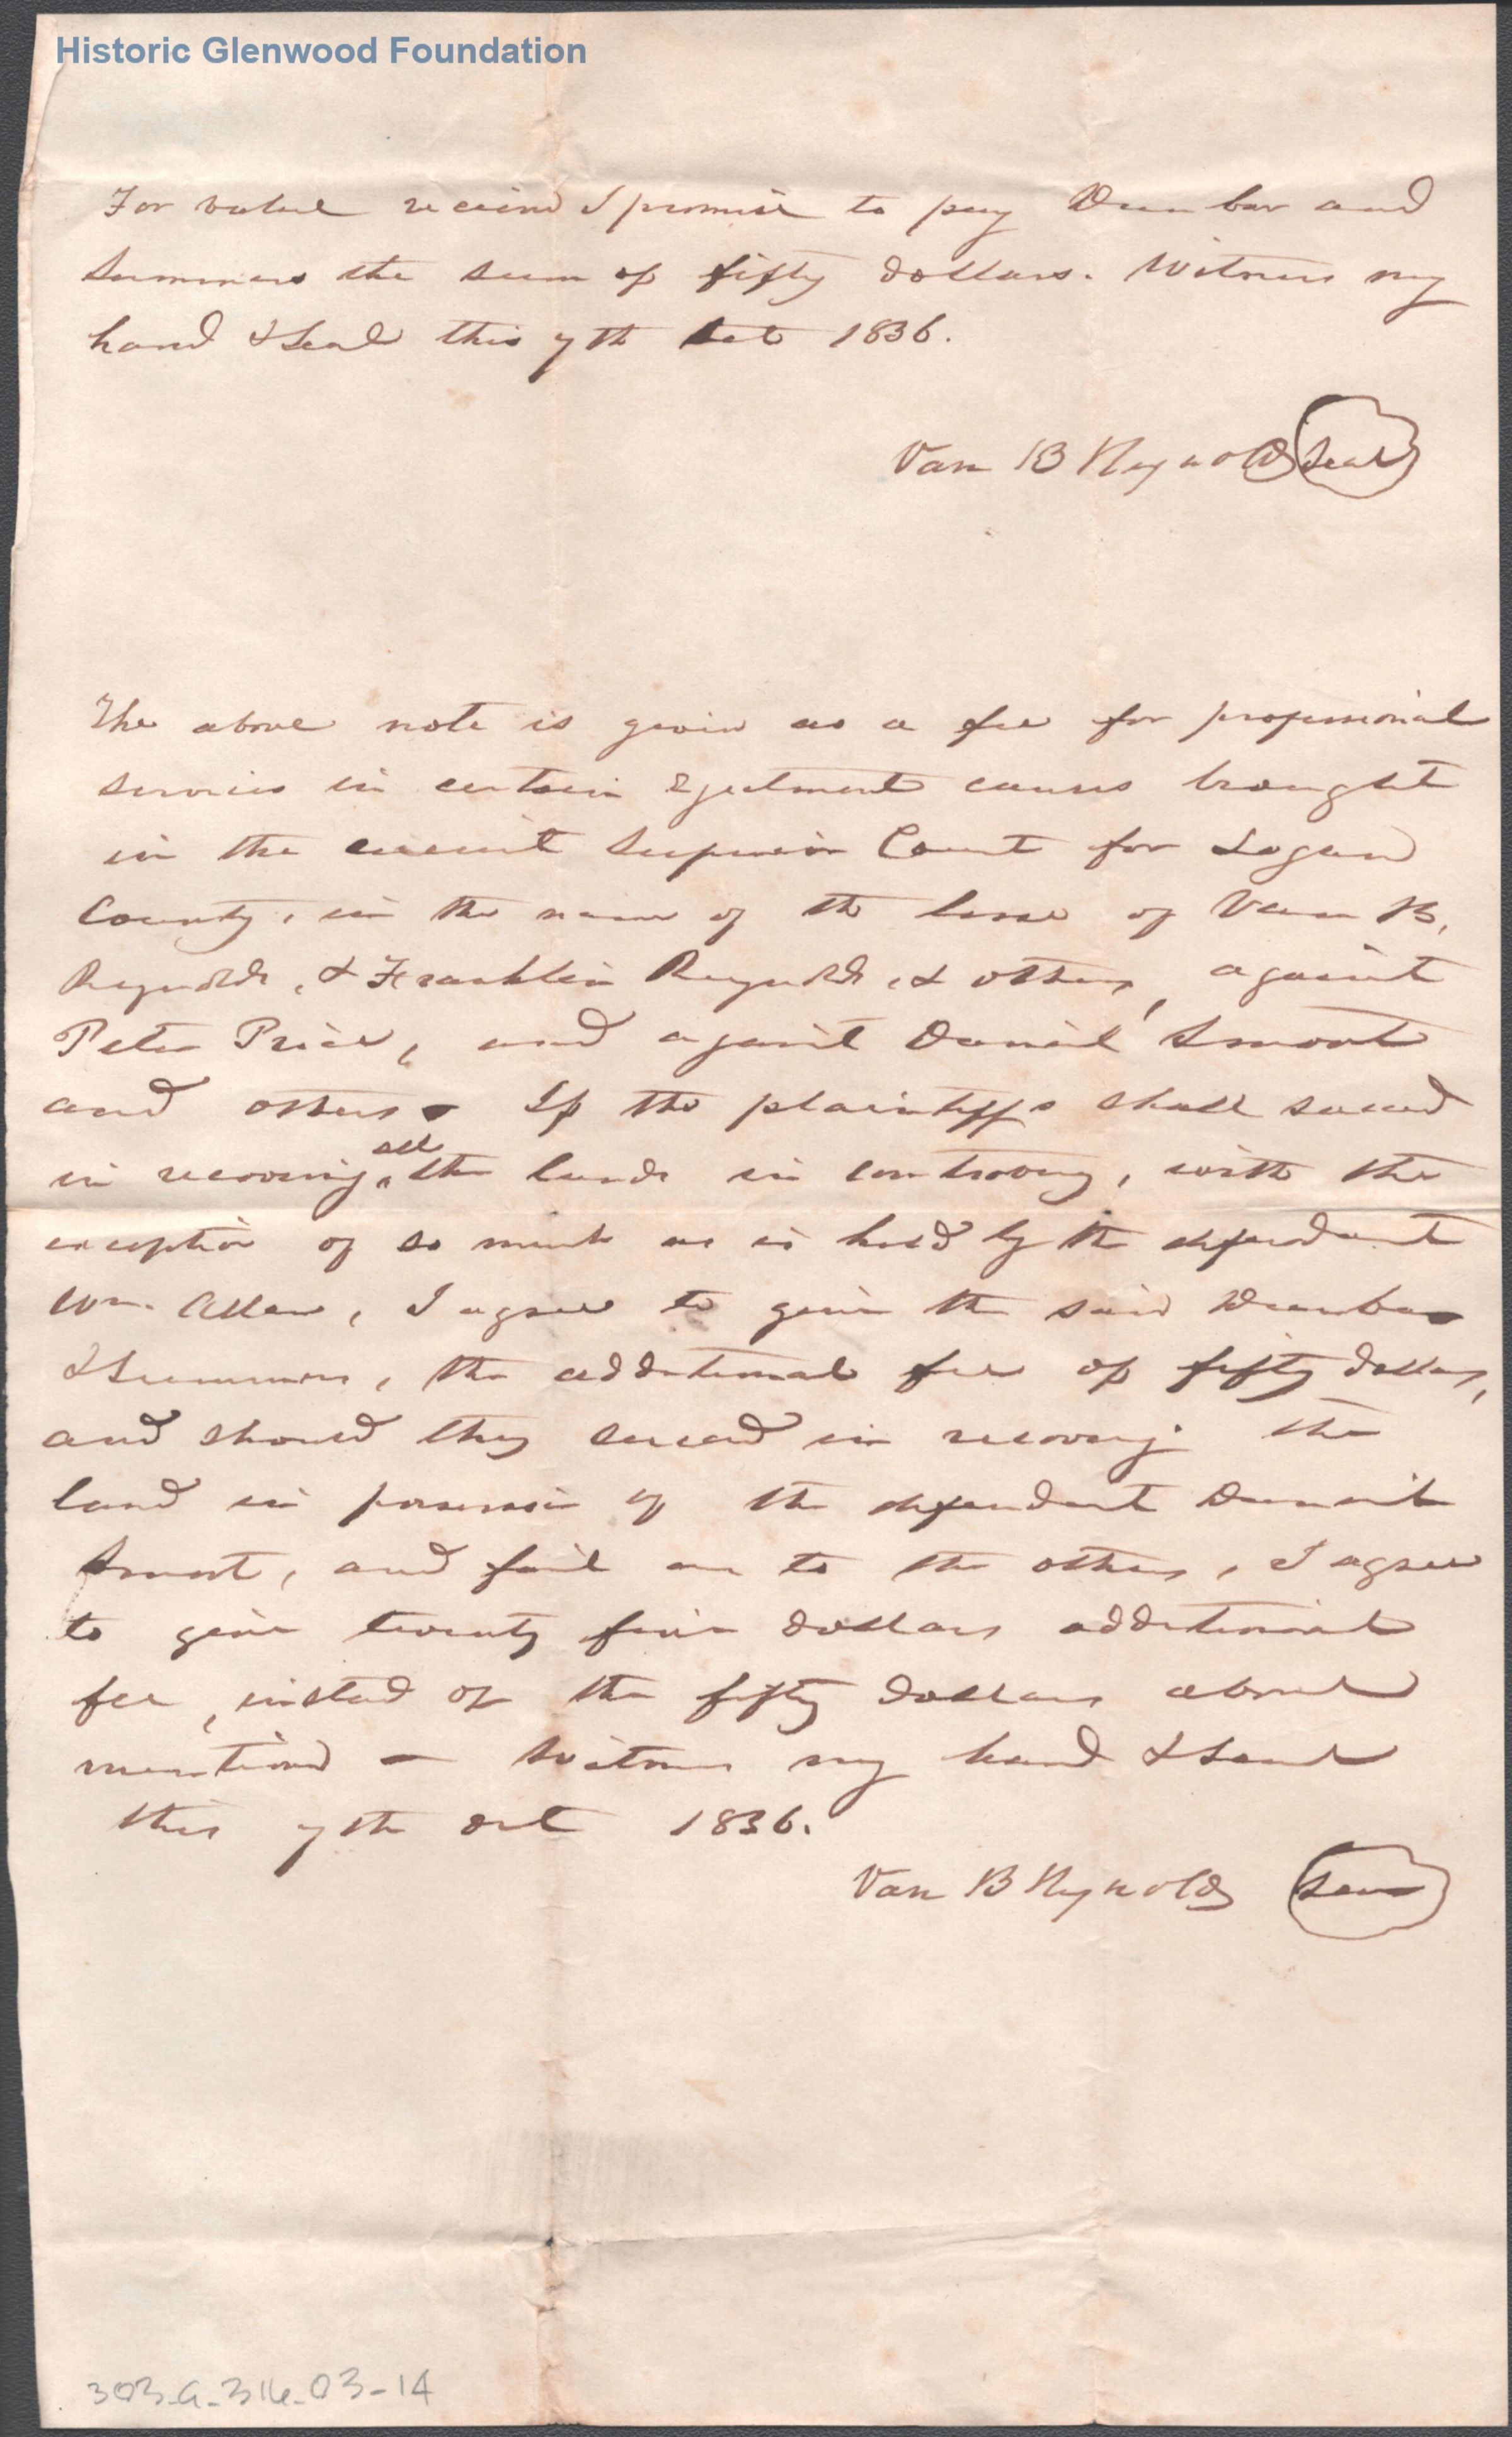 Historic Glenwood Foundation
For value received I promise to pay Dunbar and
Summers the sum of fifty dollars. Witness my
hand & seal this 7th Oct 1836.
Van B Reynolds Seal
The above note is given as a fee for professional
services in certain Ejectment causes brought
in the circuit Superior Court for Logan
County, in the name of the lessee of Van B.
Reynolds, & Franklin Reynolds, & others, against
Peter Price, and against Daniel Smoot
and others. If the plaintiffs shall succeed
in recovering all the lands in controversy, with the
exception of so much as is held by the defendant
Wm. Allen, I agree to give the said Dunbar
& Summers, the additional fee of fifty dollars,
and should they succeed in recovering the
land in possession of the defendant Daniel
Smoot, and fail as to the others, I agree
to give twenty five dollars additional
fee, instead of the fifty dollars above
mentioned – Witness my hand & seal
this 7th Oct 1836.
Van B Reynolds Seal
303-G-316-03-14